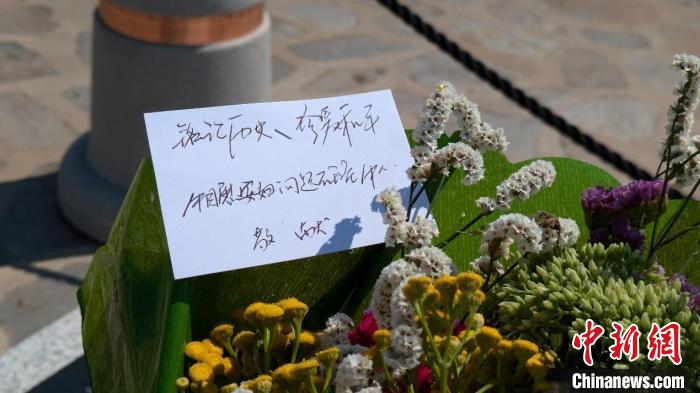 铭记历史、珍爱和平
中国慰安妇问题研究中心
敬献
中新网
Chinanews.com